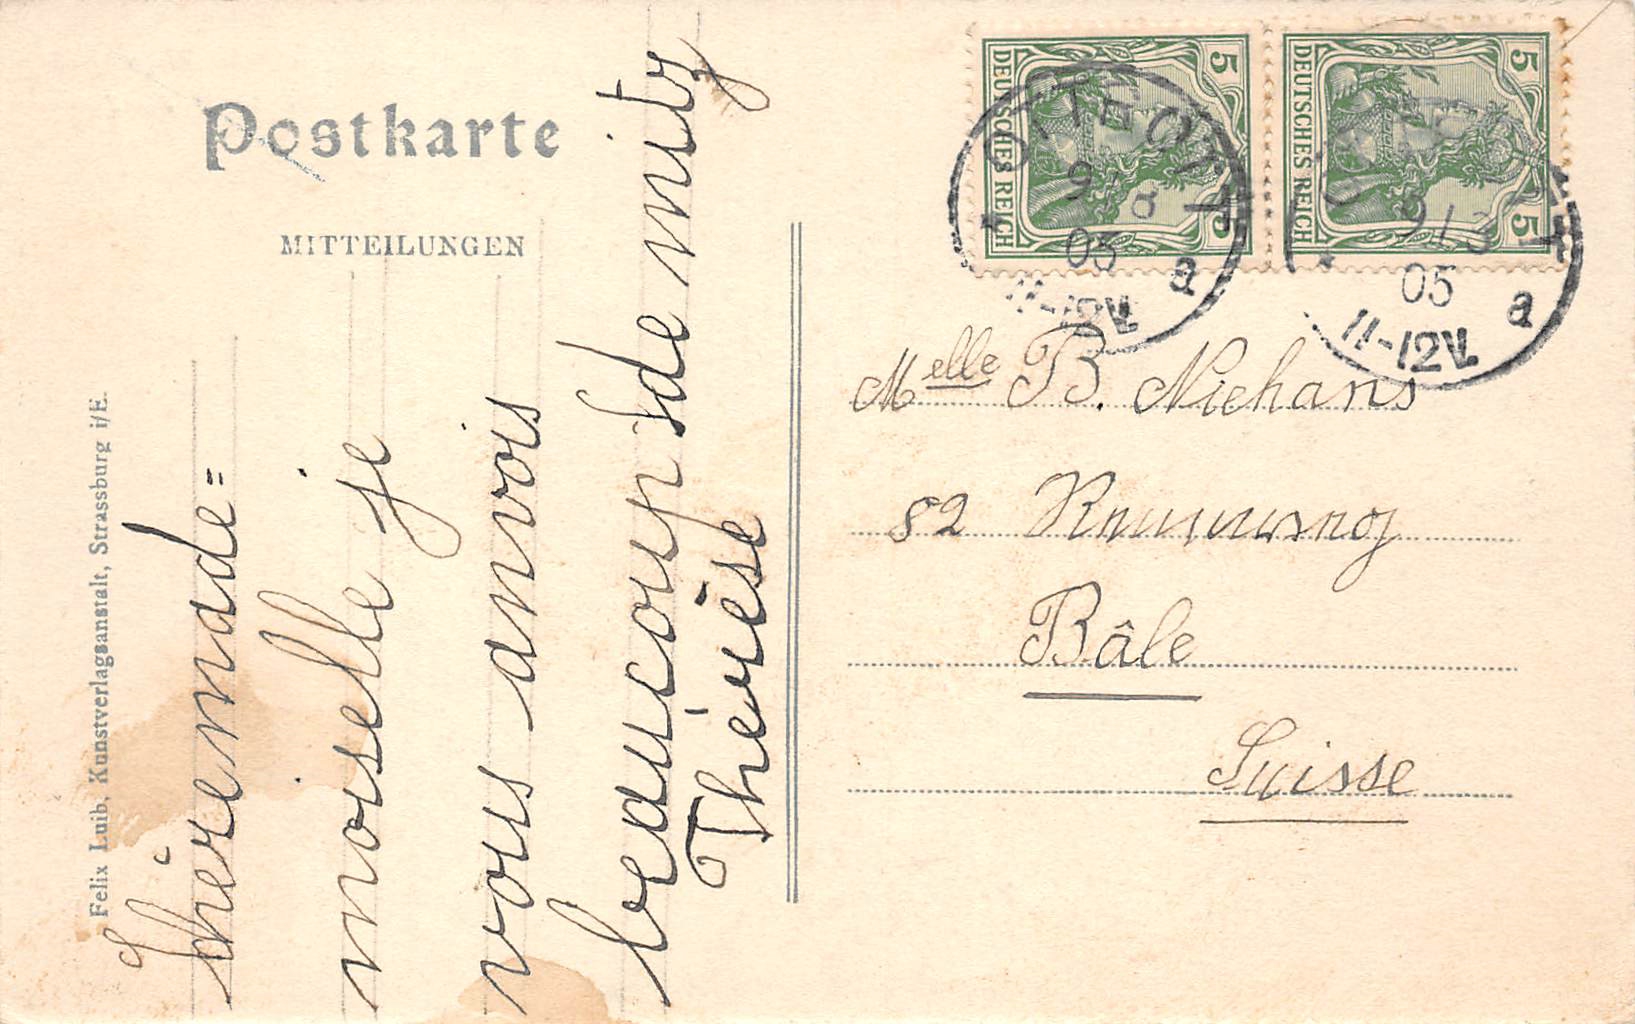 Postkarte
MITTEILUNGEN
Felix Luib, Kunstverlagsanstalt, Strassburg i/E.
Chère made=
moiselle je
vous anvois
beaucoup de mitz
Thérèse
DEUTSCHES REICH
5 5
DEUTSCHES REICH
5 5
9
05
a
11-12V.
9 3
05
a
11-12V.
Melle B. Niehans
82
Bâle
Suisse